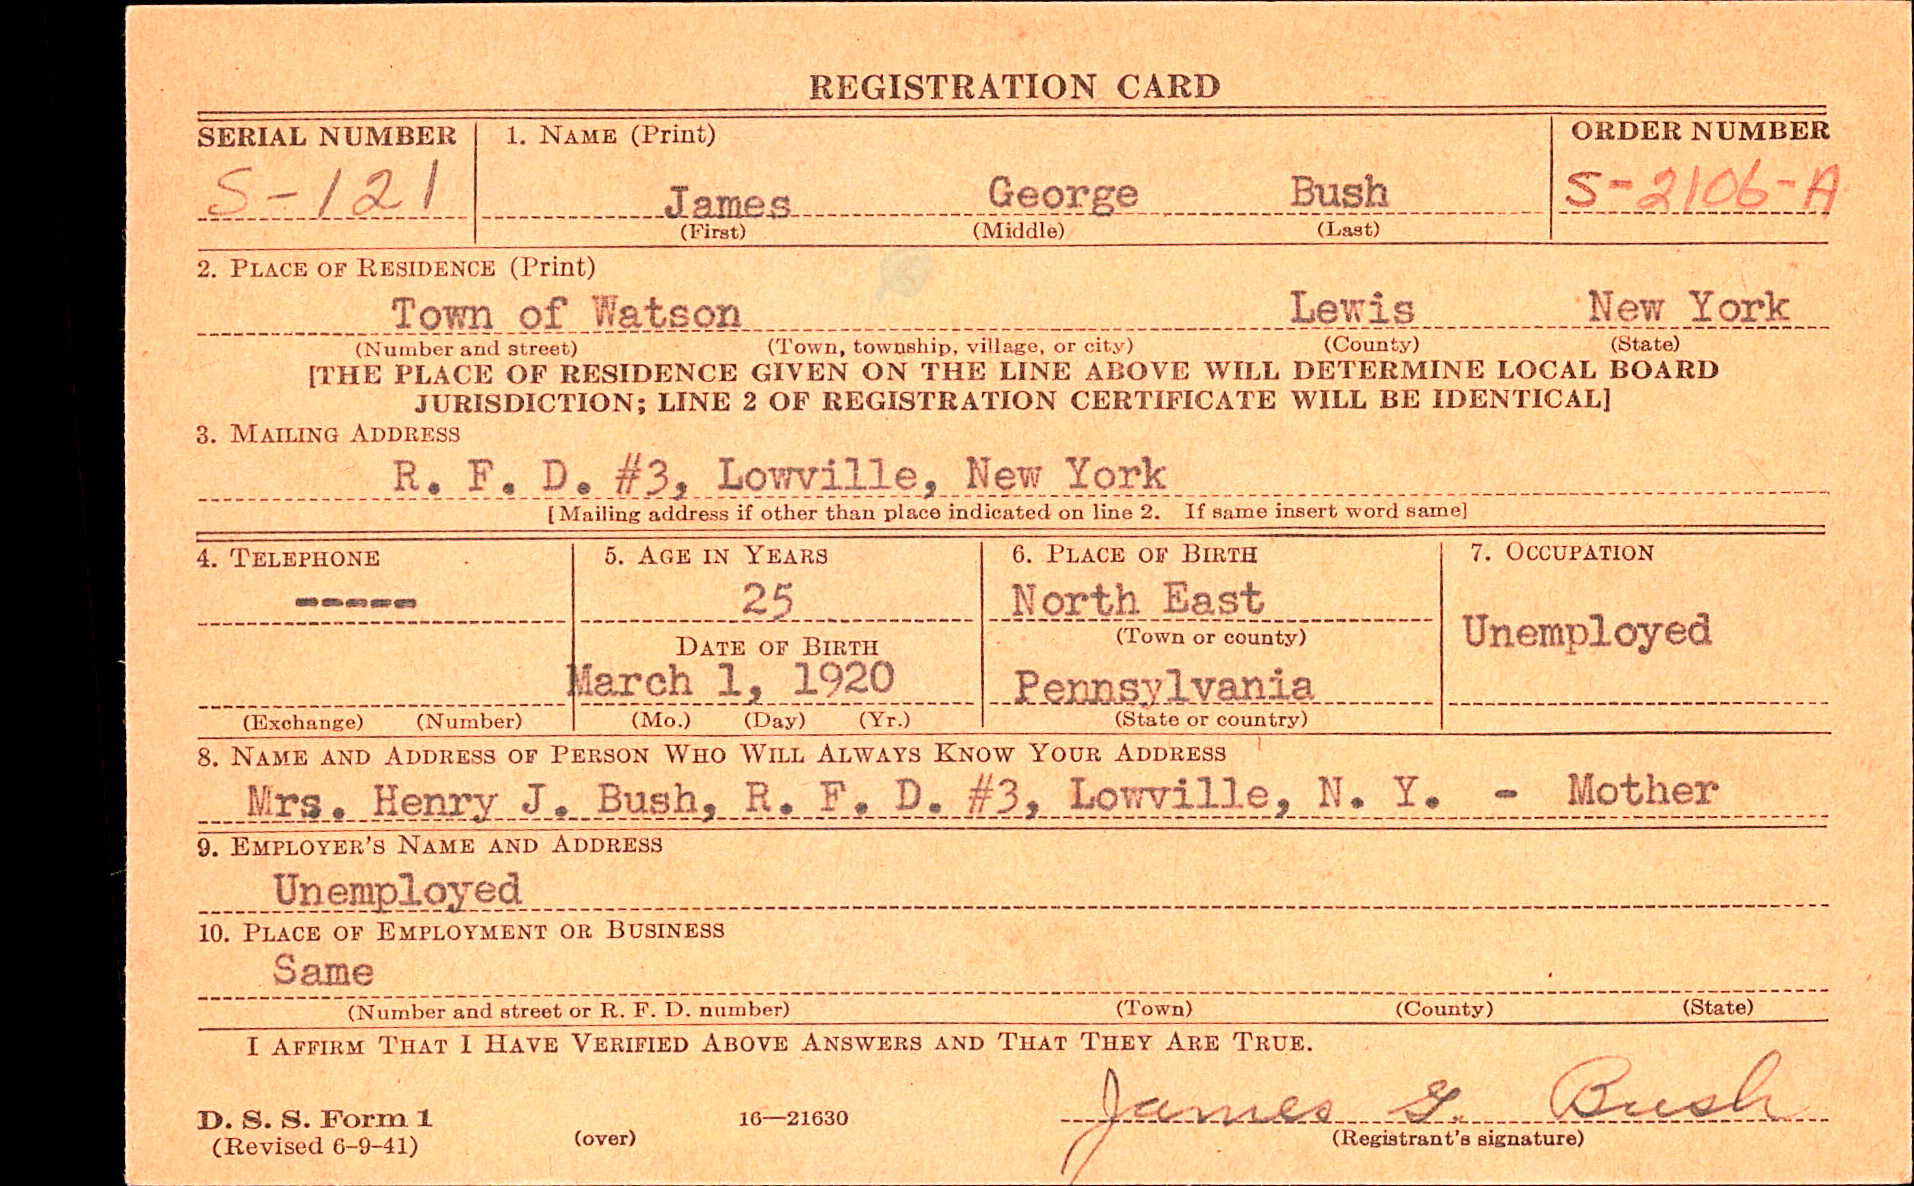 REGISTRATION CARD
SERIAL NUMBER 1. NAME (Print) ORDER NUMBER
S-121 James George Bush S-2106-A
(First) (Middle) (Last)
2. PLACE OF RESIDENCE (Print)
Town of Watson Lewis New York
(Number and street) (Town, township, village, or city) (County) (State)
[THE PLACE OF RESIDENCE GIVEN ON THE LINE ABOVE WILL DETERMINE LOCAL BOARD
JURISDICTION; LINE 2 OF REGISTRATION CERTIFICATE WILL BE IDENTICAL]
3. MAILING ADDRESS
R. F. D. #3, Lowville, New York
[Mailing address if other than place indicated on line 2. If same insert word same]
4. TELEPHONE 5. AGE IN YEARS 6. PLACE OF BIRTH 7. OCCUPATION
----- 25 North East
(Town or county) Unemployed
DATE OF BIRTH
March 1, 1920 Pennsylvania
(Exchange) (Number) (Mo.) (Day) (Yr.) (State or country)
8. NAME AND ADDRESS OF PERSON WHO WILL ALWAYS KNOW YOUR ADDRESS
Mrs. Henry J. Bush, R. F. D. #3, Lowville, N. Y. - Mother
9. EMPLOYER'S NAME AND ADDRESS
Unemployed
10. PLACE OF EMPLOYMENT OR BUSINESS
Same
(Number and street or R. F. D. number) (Town) (County) (State)
I AFFIRM THAT I HAVE VERIFIED ABOVE ANSWERS AND THAT THEY ARE TRUE.
James G. Bush
D. S. S. Form 1 16—21630
(Revised 6-9-41) (over) (Registrant's signature)